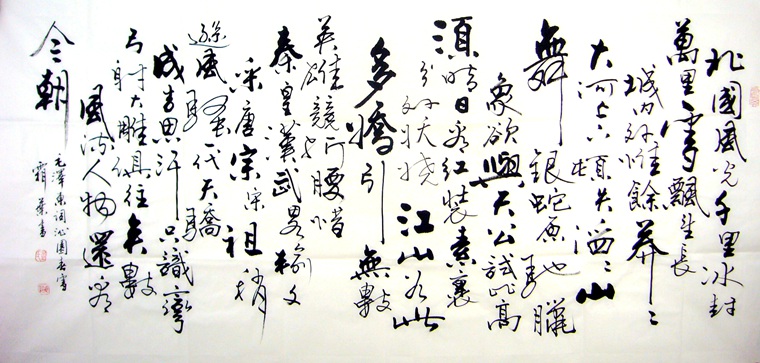 北國風光千里冰封
萬里雪飄望長
城内外惟餘莽〻
大河上下頓失滔〻山
舞銀蛇原馳臘
象欲與天公試比高
須晴日看紅裝素裹
分外妖嬈江山如此
多嬌引無數
英雄競折腰惜
秦皇漢武略輸文
采唐宗宋祖稍
遜風騷一代天驕
成吉思汗只識彎
弓射大雕俱往矣數
風流人物還看
今朝
毛澤東詞沁園春雪
霜葉書